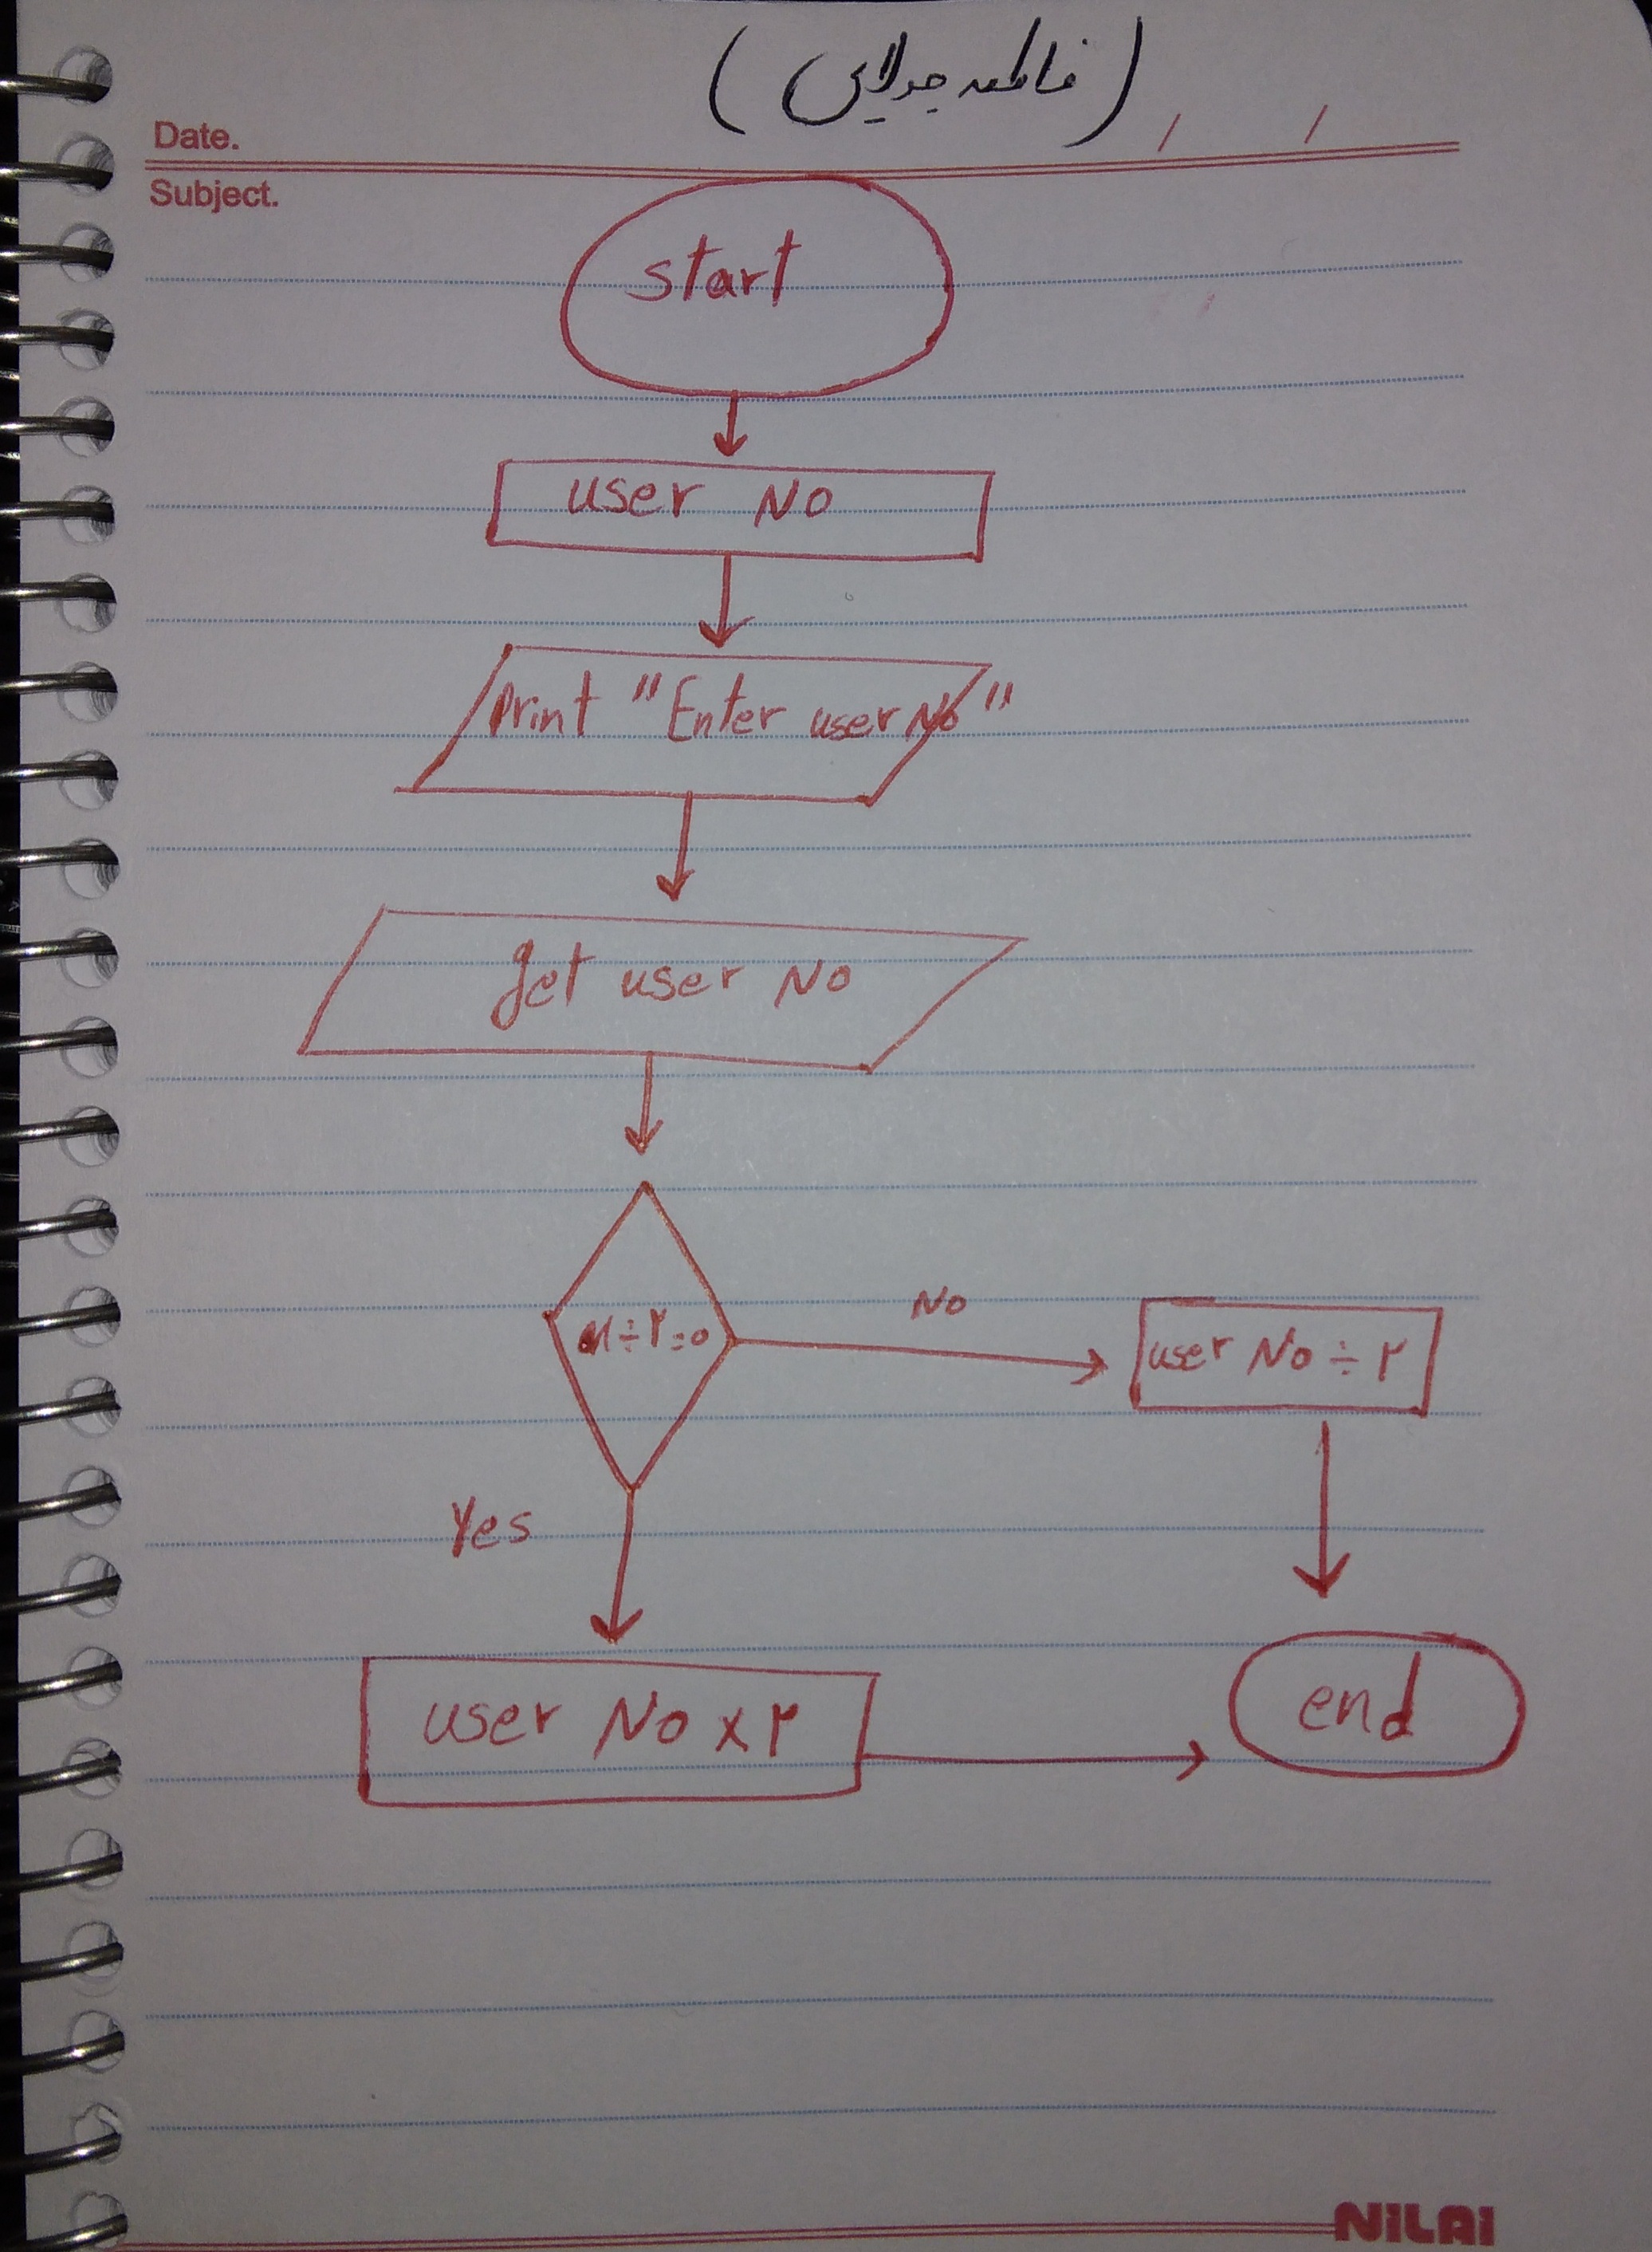 (فاطمه جولایی)
Date. / /
Subject.
start
user No
Print "Enter user No"
get user No
÷۲=0
No
user No ÷ ۲
Yes
user No x۲
end
NiLAi